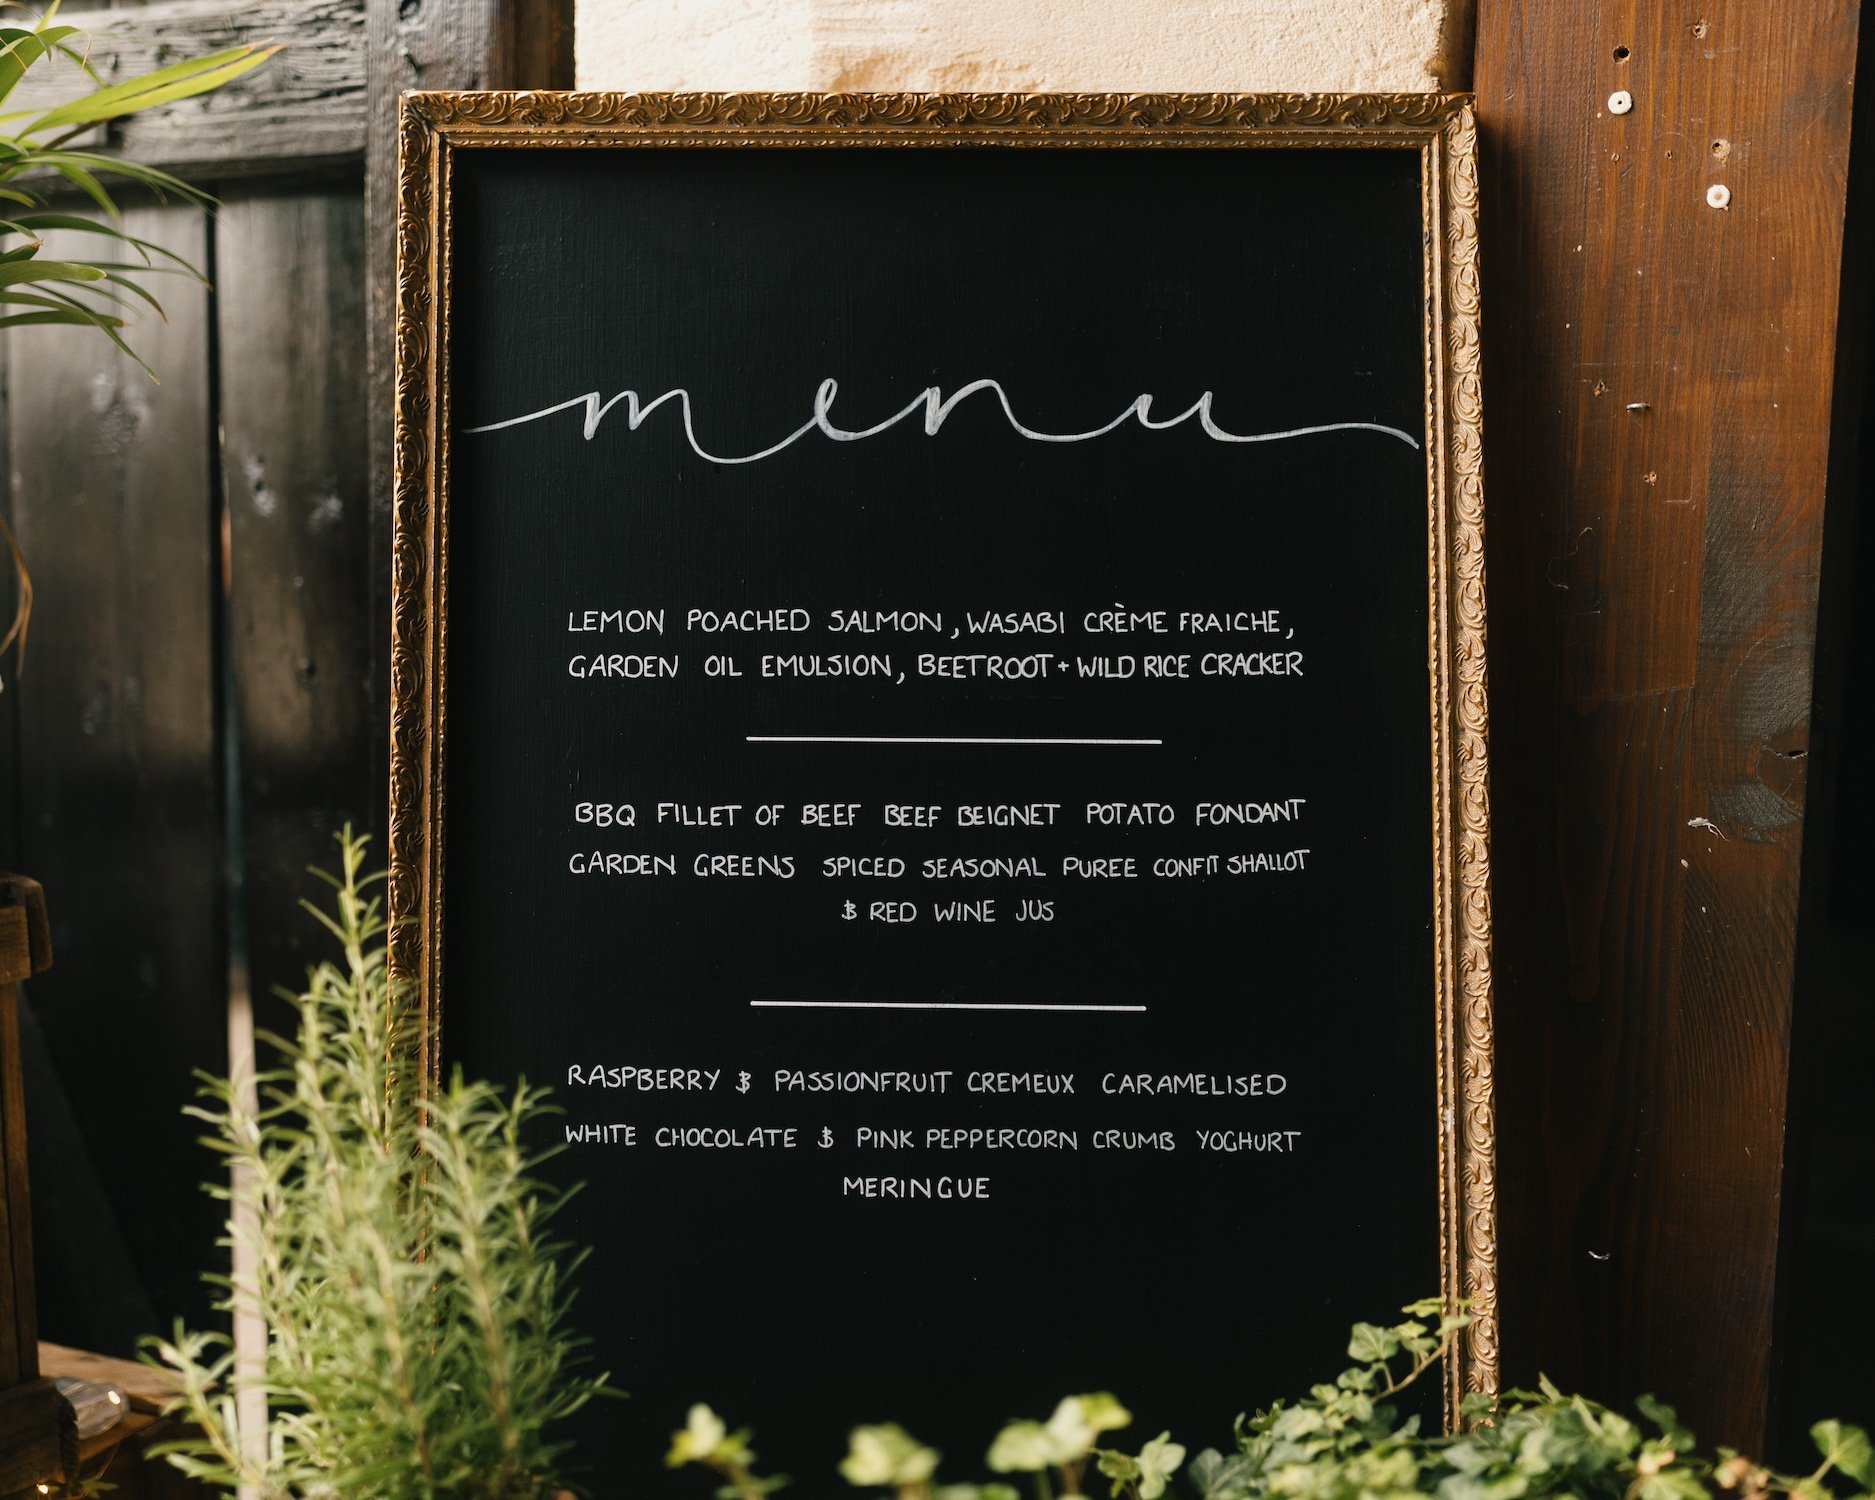 menu
LEMON POACHED SALMON, WASABI CRÈME FRAICHE,
GARDEN OIL EMULSION, BEETROOT + WILD RICE CRACKER
BBQ FILLET OF BEEF BEEF BEIGNET POTATO FONDANT
GARDEN GREENS SPICED SEASONAL PUREE CONFIT SHALLOT
& RED WINE JUS
RASPBERRY & PASSIONFRUIT CREMEUX CARAMELISED
WHITE CHOCOLATE & PINK PEPPERCORN CRUMB YOGHURT
MERINGUE